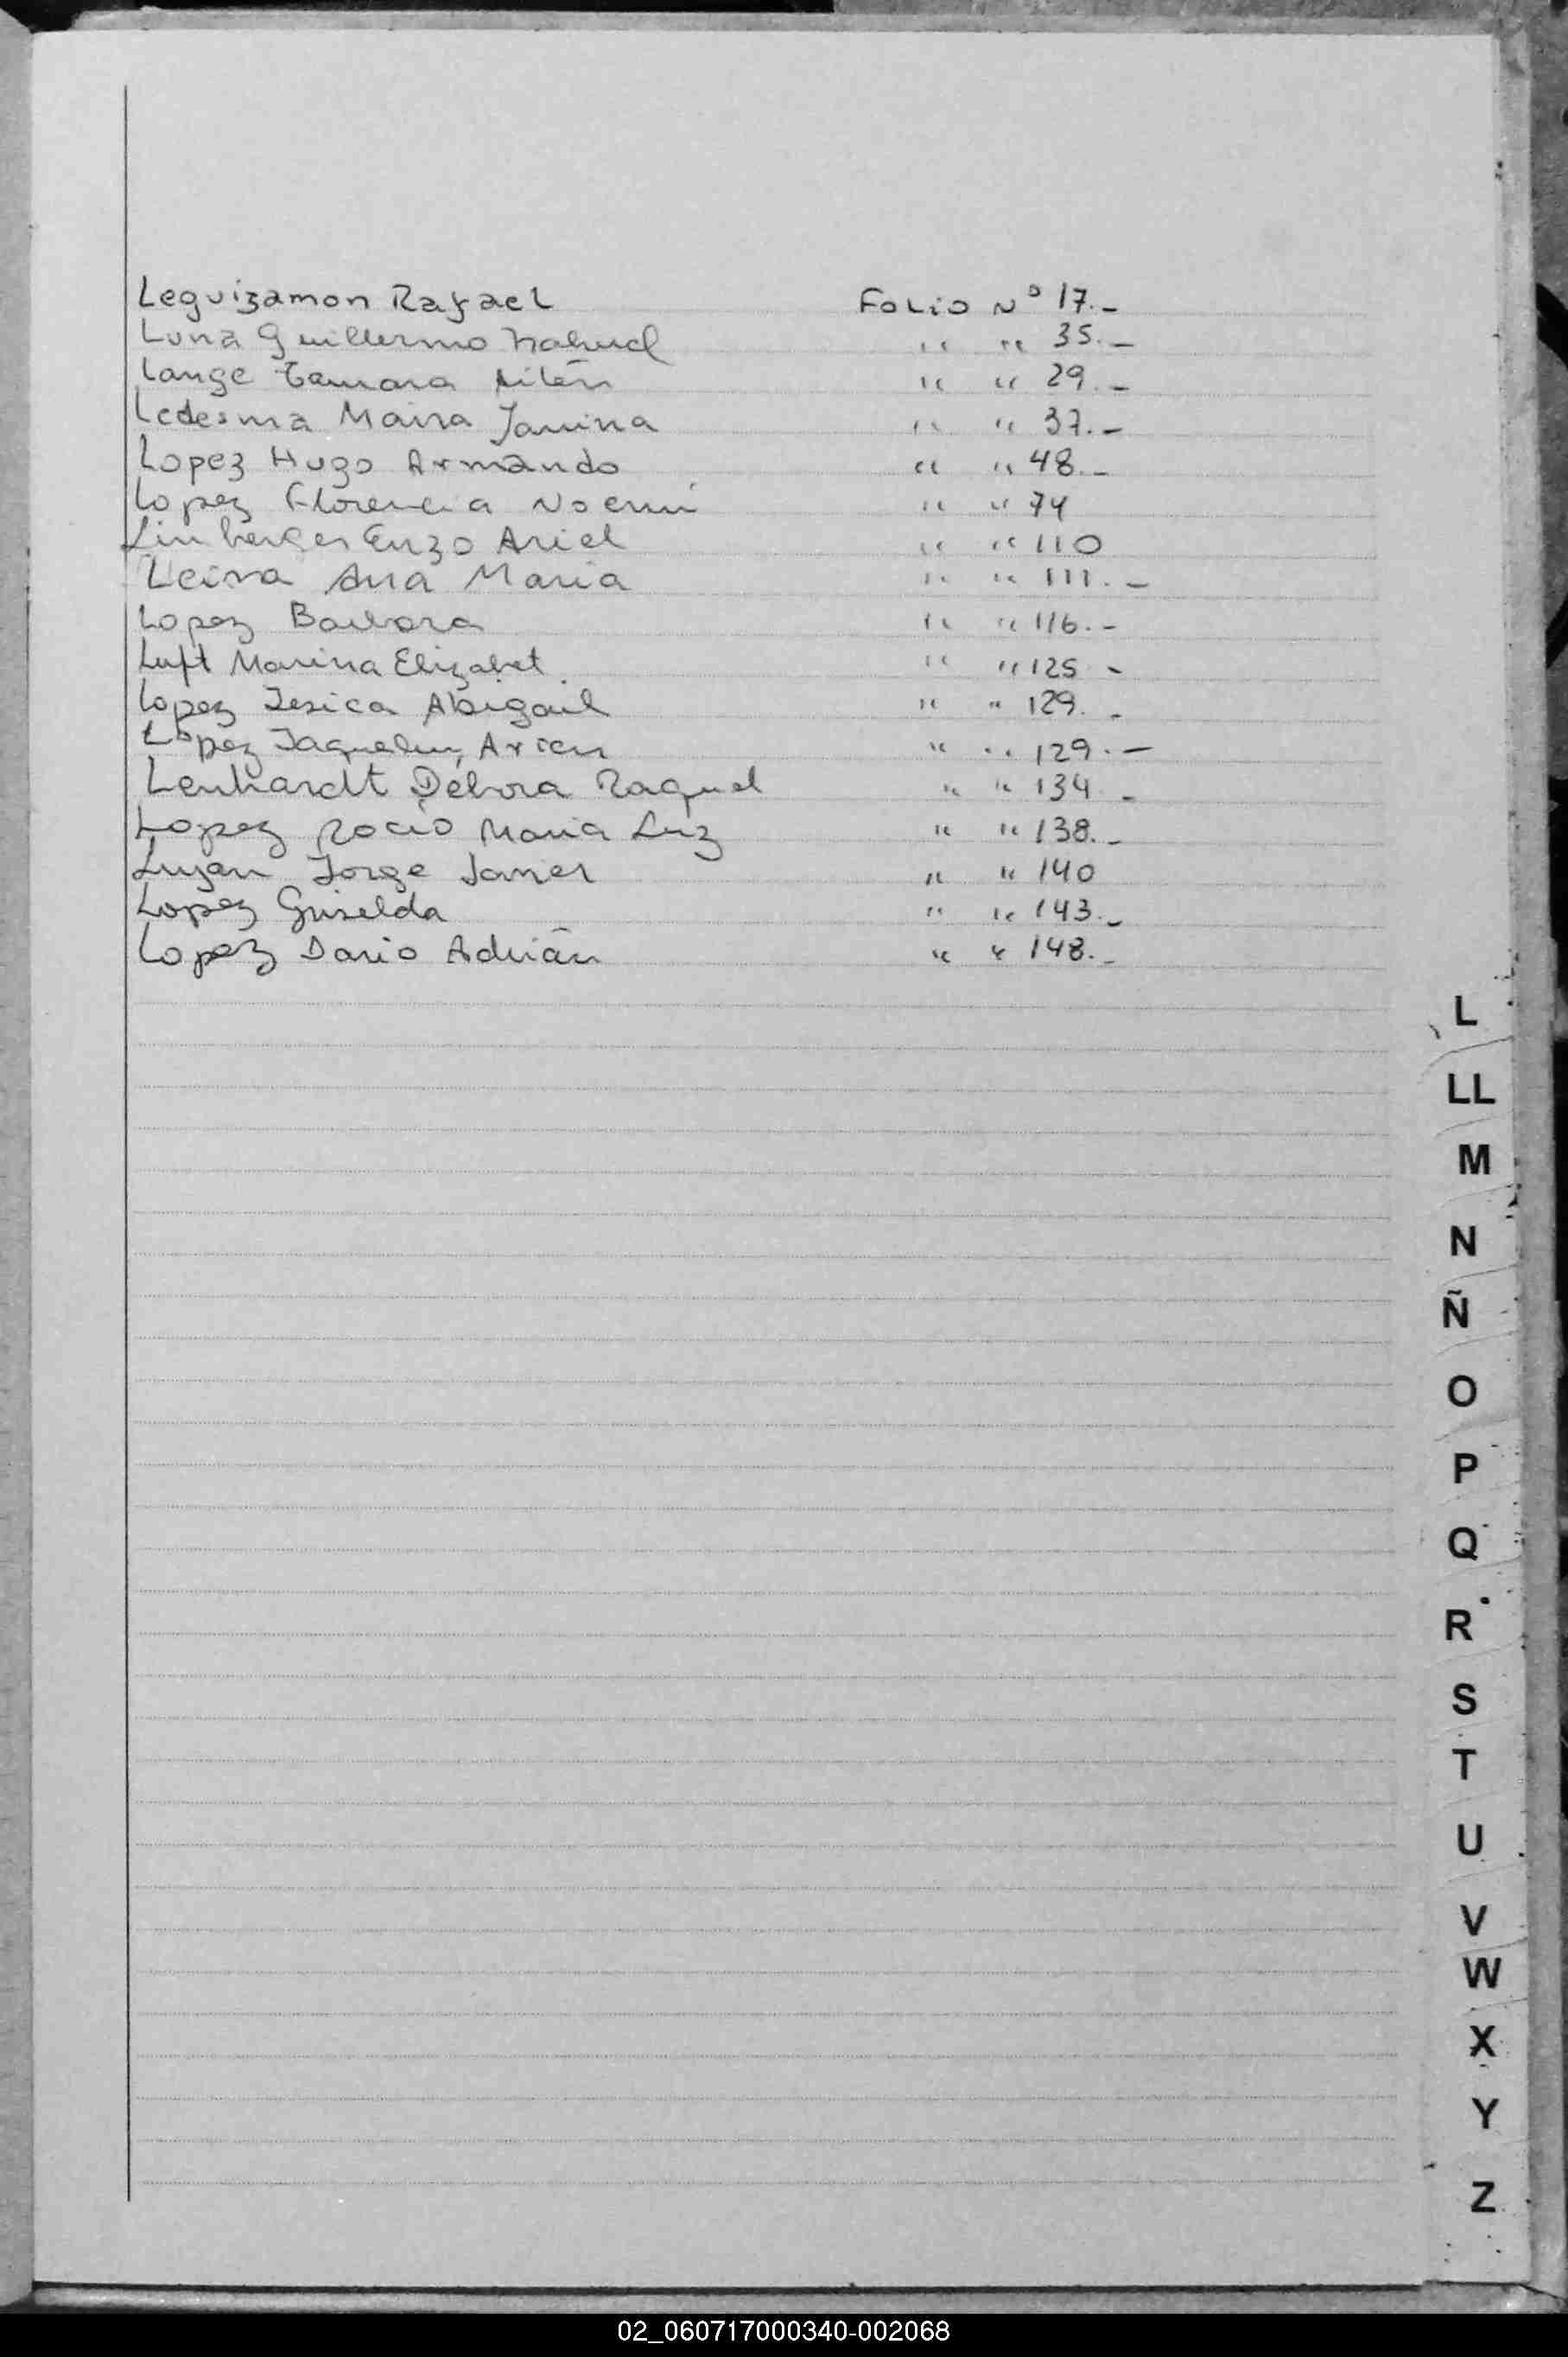 Leguizamon Rafael Folio Nº 17.-
Luna Guillermo Nahuel " " 35.-
Lange Tamara Ailén " " 29.-
Ledesma Maira Janina " " 37.-
Lopez Hugo Armando " " 48.-
Lopez Florencia Noemí " " 74
Linberger Enzo Ariel " " 110
Leiva Ana Maria " " 111.-
Lopez Barbara " " 116.-
Luft Marina Elizabet " " 125 -
Lopez Jesica Abigail " " 129.-
Lopez " " 129.-
Lenhardt Débora Raquel " " 134 -
Lopez Rocio Maria Luz " " 138.-
Lujan Jorge Javier " " 140
Lopez Griselda " " 143.-
Lopez Dario Adrián " " 148.-
L
LL
M
N
Ñ
O
P
Q
R
S
T
U
V
W
X
Y
Z
02_060717000340-002068